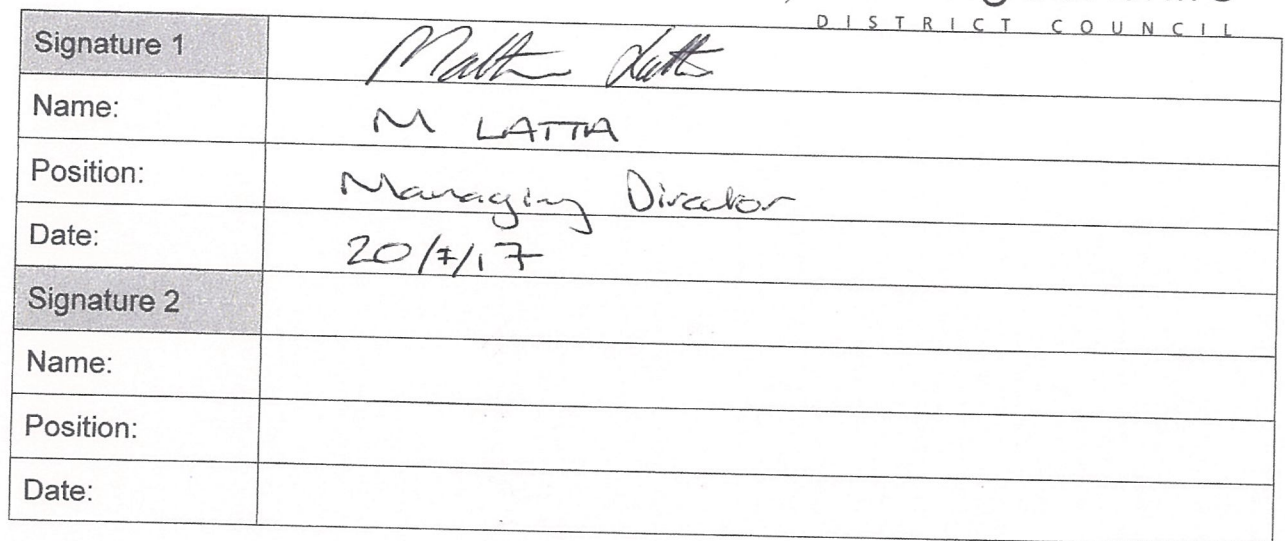 DISTRICT COUNCIL
Signature 1
Name: M LATTA
Position: Managing Director
Date: 20/7/17
Signature 2
Name:
Position:
Date: